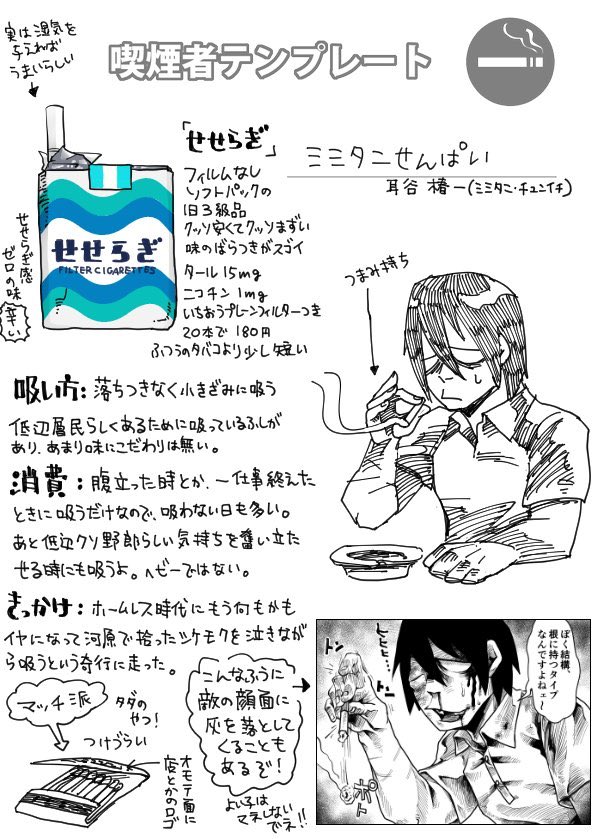 実は湿気を
与えれば
うまいらしい
喫煙者テンプレート
「せせらぎ」
ミミタニせんぱい
耳谷 椿一(ミミタニ・チュンイチ)
フィルムなし
ソフトパックの
旧3級品
クッソ安くてクッソまずい
味のばらつきがスゴイ
タール15mg
ニコチン1mg
いちおうプレーンフィルターつき
20本で180円
ふつうのタバコより少し短い
せせらぎ
FILTER CIGARETTES
せせらぎ感
ゼロの味
辛い
つまみ持ち
吸い方:落ちつきなく小きざみに吸う
低辺層民らしくあるために吸っているふしが
あり、あまり味にこだわりは無い。
消費:腹立った時とか、一仕事終えた
ときに吸うだけなので、吸わない日も多い。
あと低辺クソ野郎らしい気持ちを奮い立た
せる時にも吸うよ。ヘビーではない。
きっかけ:ホームレス時代にもう何もかも
イヤになって河原で拾ったシケモクを泣きなが
ら吸うという奇行に走った。
マッチ派
タダの
やつ!
つけづらい
オモテ面に
店とかのロゴ
こんなふうに
敵の顔面に
灰を落として
くることも
あるぞ!
よい子は
マネしない
でネ!!
ぼく結構、
根に持つタイプ
なんですよねェ〜
ヒヒヒ…
トン
トン
ポト